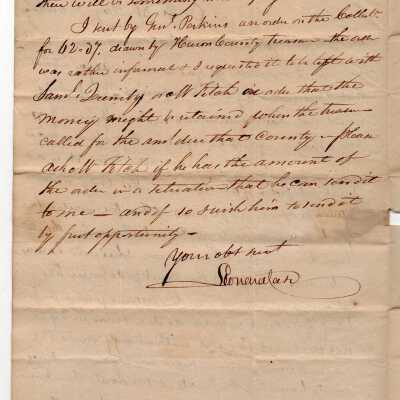 their will is something
I sent by Genl. Perkins an order on the Collectr.
for 62.37 drawn by Huron County treasr - the order
was rather informal & I requested it to be left with
Saml. Quinby or Mr Fitch in order that the
money might be retained when the treasr
called for the amt. due that County - please
ask Mr Fitch if he has the amount of
the order in a situation that he can send it
to me - and if so I wish him to send it
by first opportunity -
Your obt servt